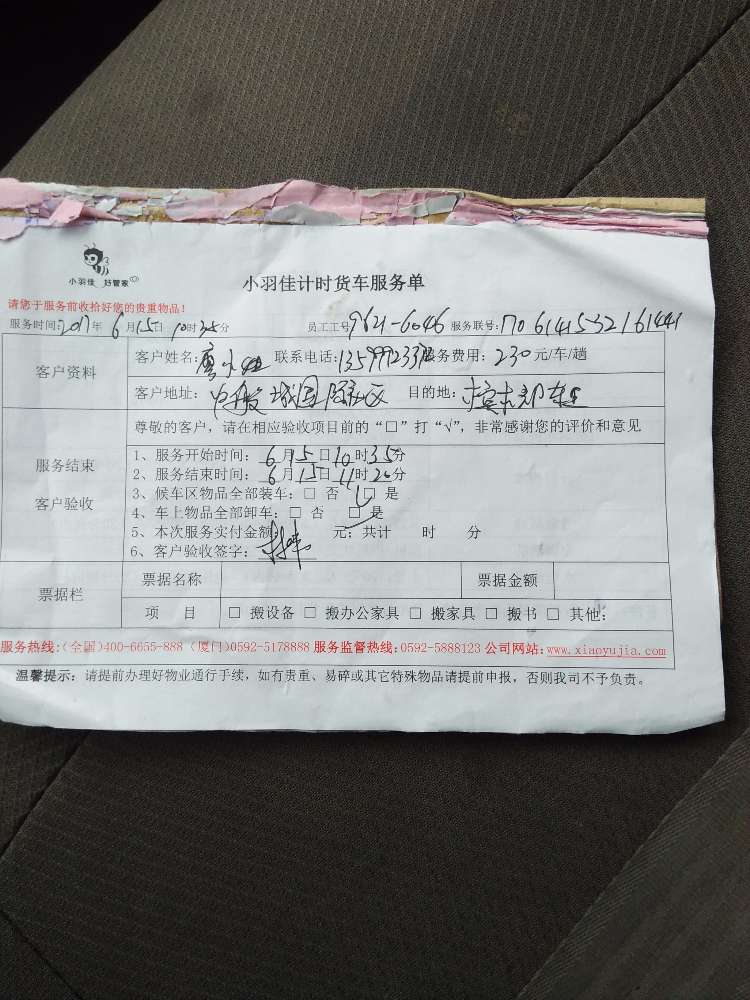 小羽佳 好管家
小羽佳计时货车服务单
请您于服务前收拾好您的贵重物品！
服务时间：2017年 6月15日 10时35分 员工工号 9621-6046 服务联号：1706141532161441
客户资料
客户姓名：廖小姐 联系电话： 服务费用：230元/车/趟
客户地址： 目的地：
尊敬的客户，请在相应验收项目前的“□”打“√”，非常感谢您的评价和意见
服务结束
客户验收
1、服务开始时间：6月15日10时35分
2、服务结束时间：6月15日11时20分
3、候车区物品全部装车：□ 否 □ 是
4、车上物品全部卸车：□ 否 □ 是
5、本次服务实付金额： 元；共计 时 分
6、客户验收签字：
票据栏
票据名称 票据金额
项 目 □ 搬设备 □ 搬办公家具 □ 搬家具 □ 搬书 □ 其他：
服务热线：(全国)400-6655-888 (厦门)0592-5178888 服务监督热线：0592-5888123 公司网站：www.xiaoyujia.com
温馨提示：请提前办理好物业通行手续，如有贵重、易碎或其它特殊物品请提前申报，否则我司不予负责。